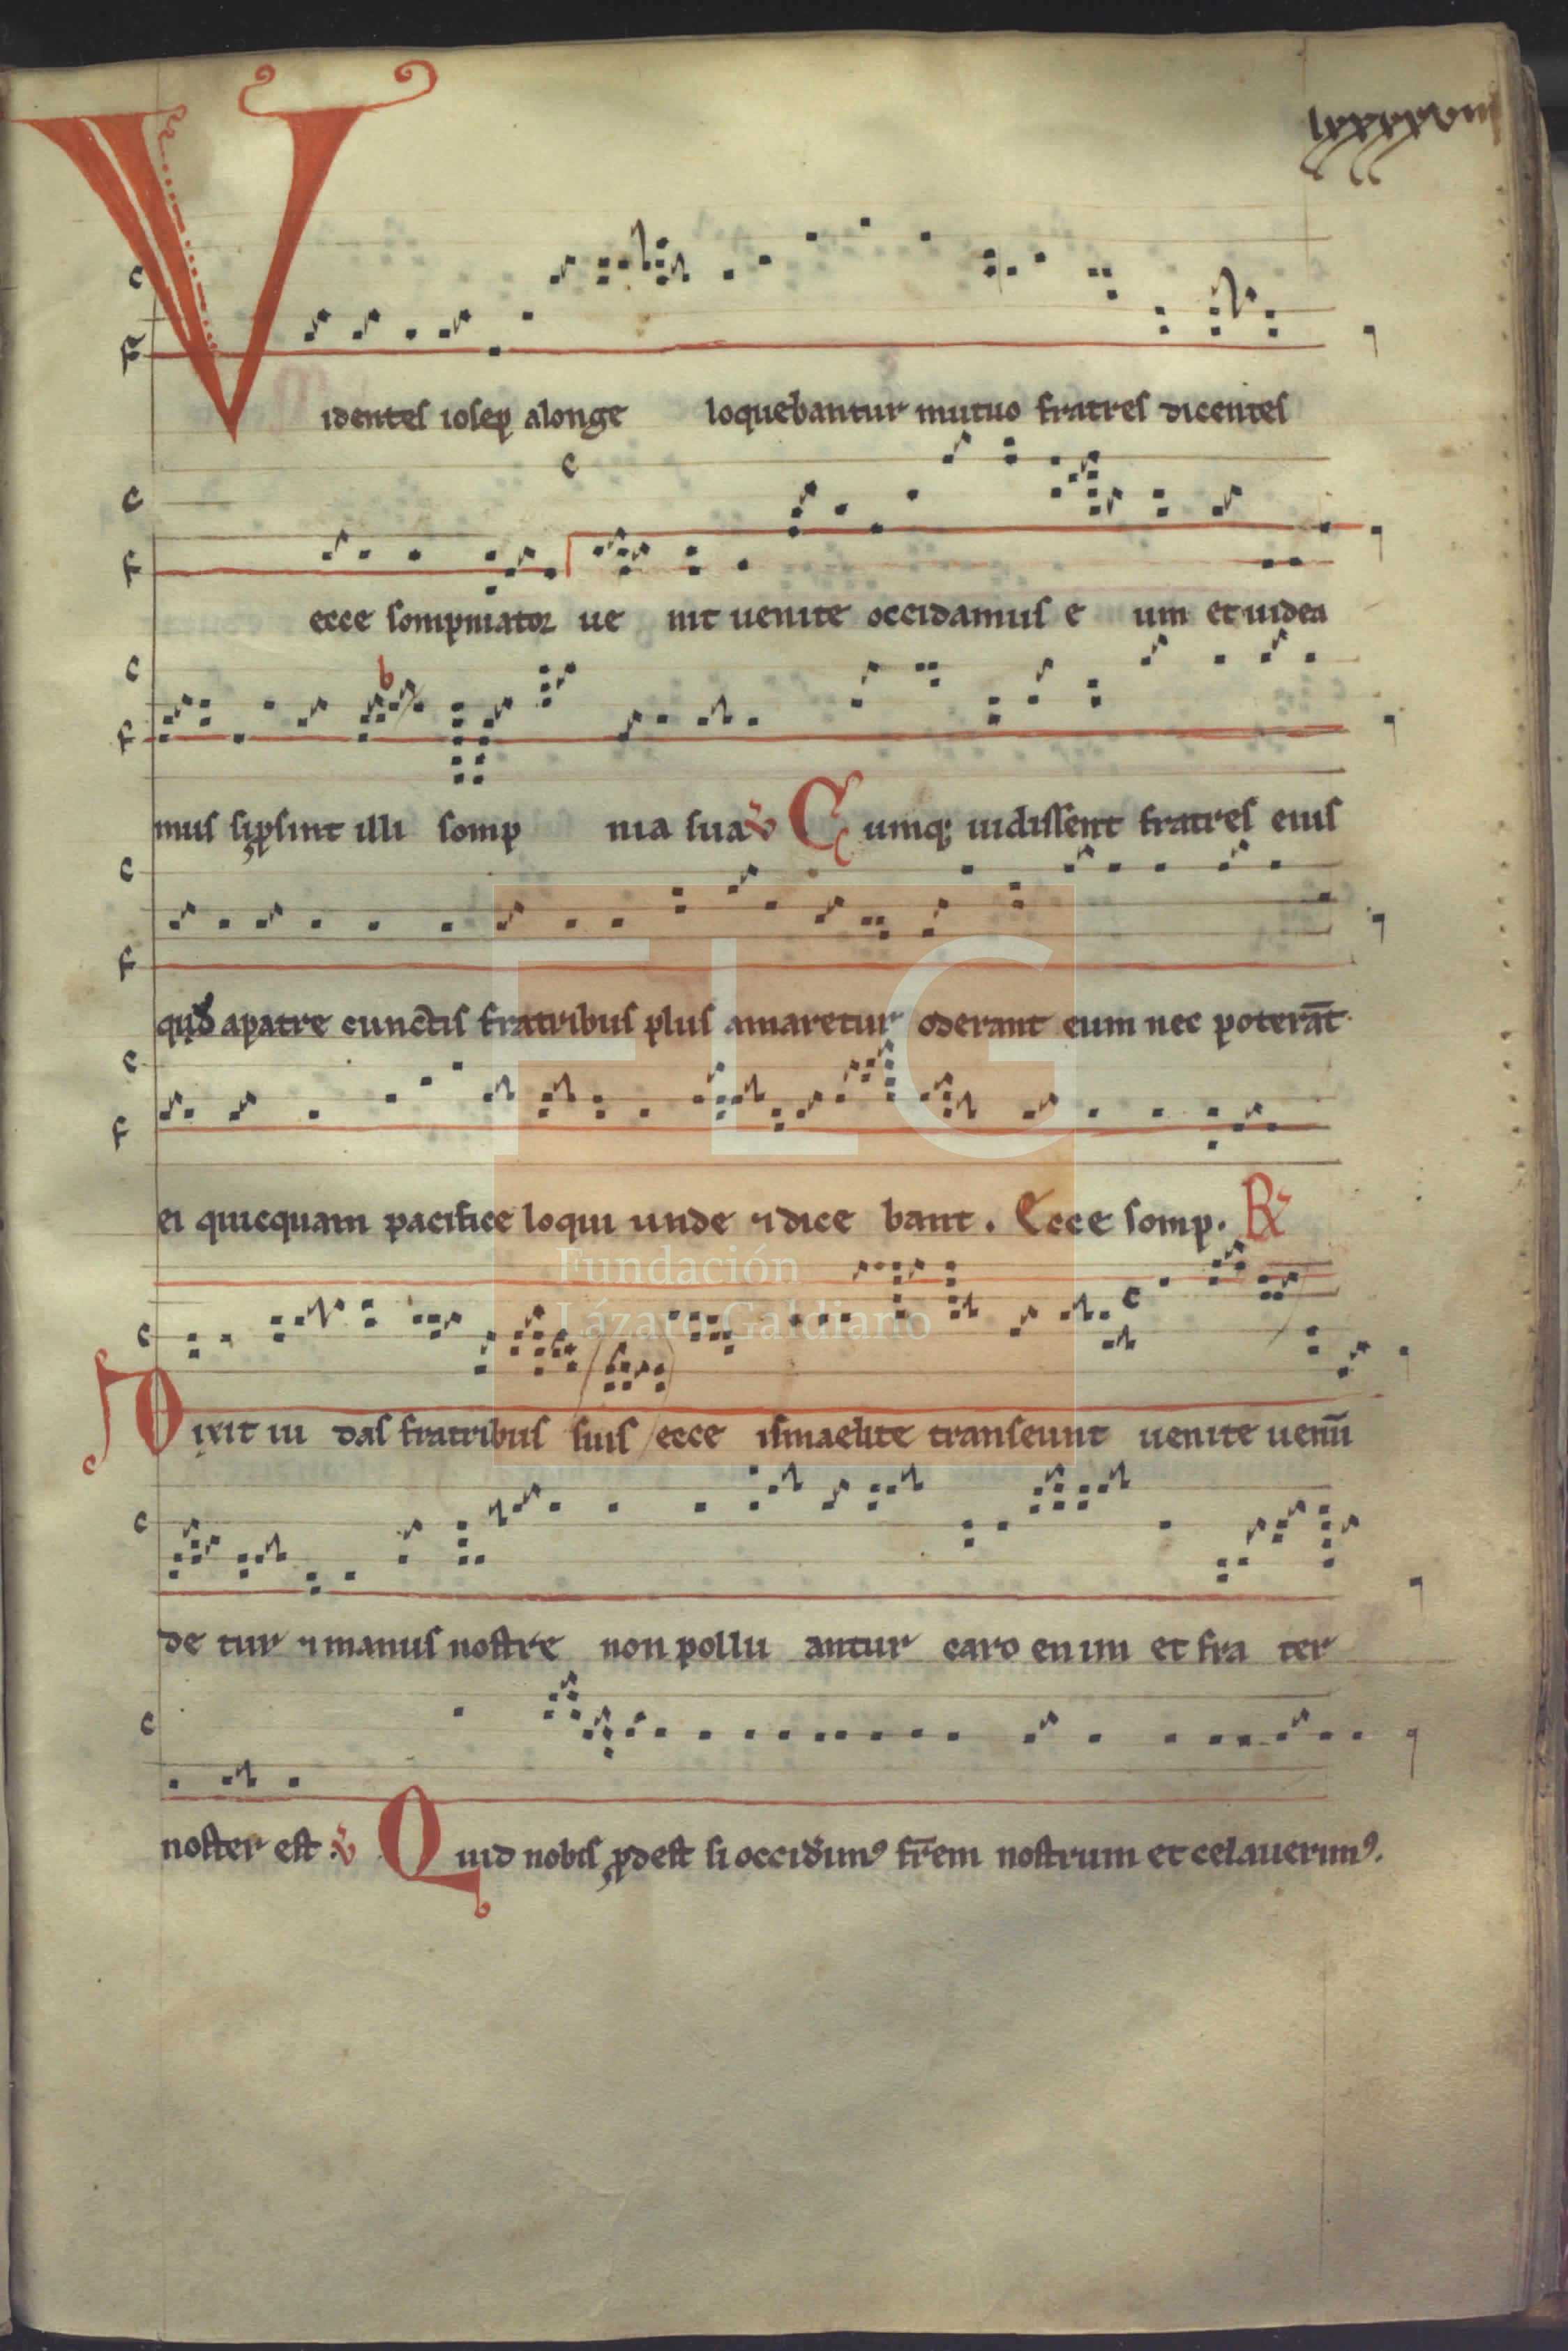 lxxxxviii
Videntes iosep alonge loquebantur mutuo fratres dicentes
ecce sompniator ue nit uenite occidamus e um et uidea
mus si ꝓsint illi somp nia sua ℣ Cumqꝫ uidissent fratres eius
quod apatre cunctis fratribus plus amaretur oderant eum nec poterāt
ei quicquam pacifice loqui unde ⁊ dice bant. Ecce somp. ℟
Dixit iu das fratribus suis ecce ismaelite transeunt uenite uenū
de tur ⁊ manus nostre non pollu antur caro enim et fra ter
noster est ℣ Quid nobis ꝓdest si occidimꝰ fr̄em nostrum et celauerimꝰ.
FLG
Fundación
Lázaro Galdiano